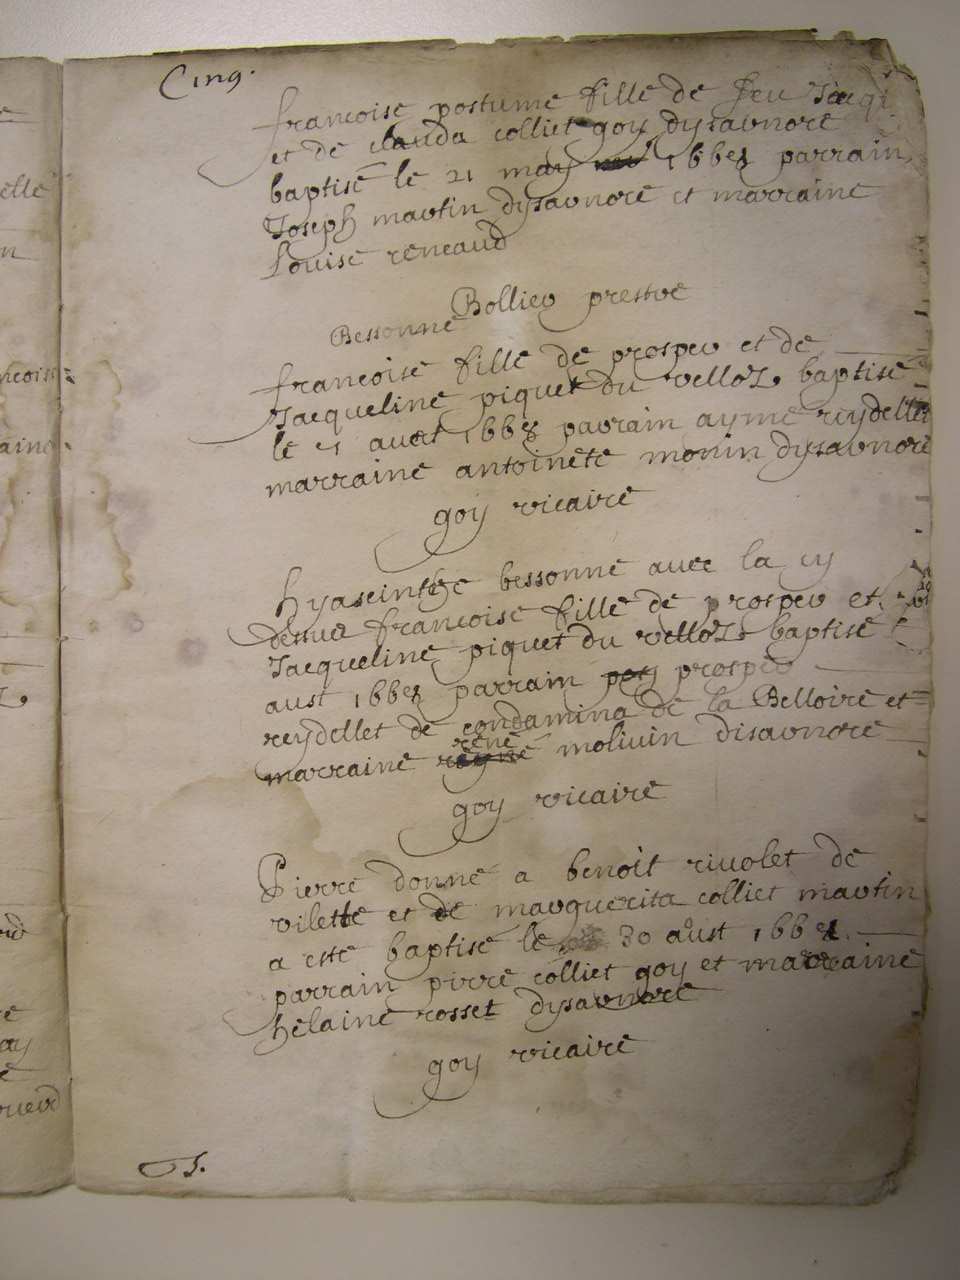 Cinq.
francoise postume fille de feu Jacq
et de clauda colliet goy dysavnore
baptisé le 21 may 1668 parrain
Joseph martin dysavnore et marraine
Louise reneaud
Bollieu prestre
Bessonne
francoise fille de prosper et de
Jacqueline piquet du velloz baptise
le aust 1668 parrain ayme reydellet
marraine antoinete monin dysavnore
goy vicaire
hyascinthe bessonne avec la cy
dessus francoise fille de prosper et
Jacqueline piquet du velloz baptise
aust 1668 parrain prosper
reydellet de condamina de la Belloire et
rene
marraine moliuin disavnore
goy vicaire
Pierre donné a benoit riuolet de
vilette et de marguerita colliet martin
a este baptisé le 30 aust 1668
parrain pirre colliet goy et marraine
helaine rosset dysavnore
goy vicaire
5.
elle
n
ncoise
aine
ay